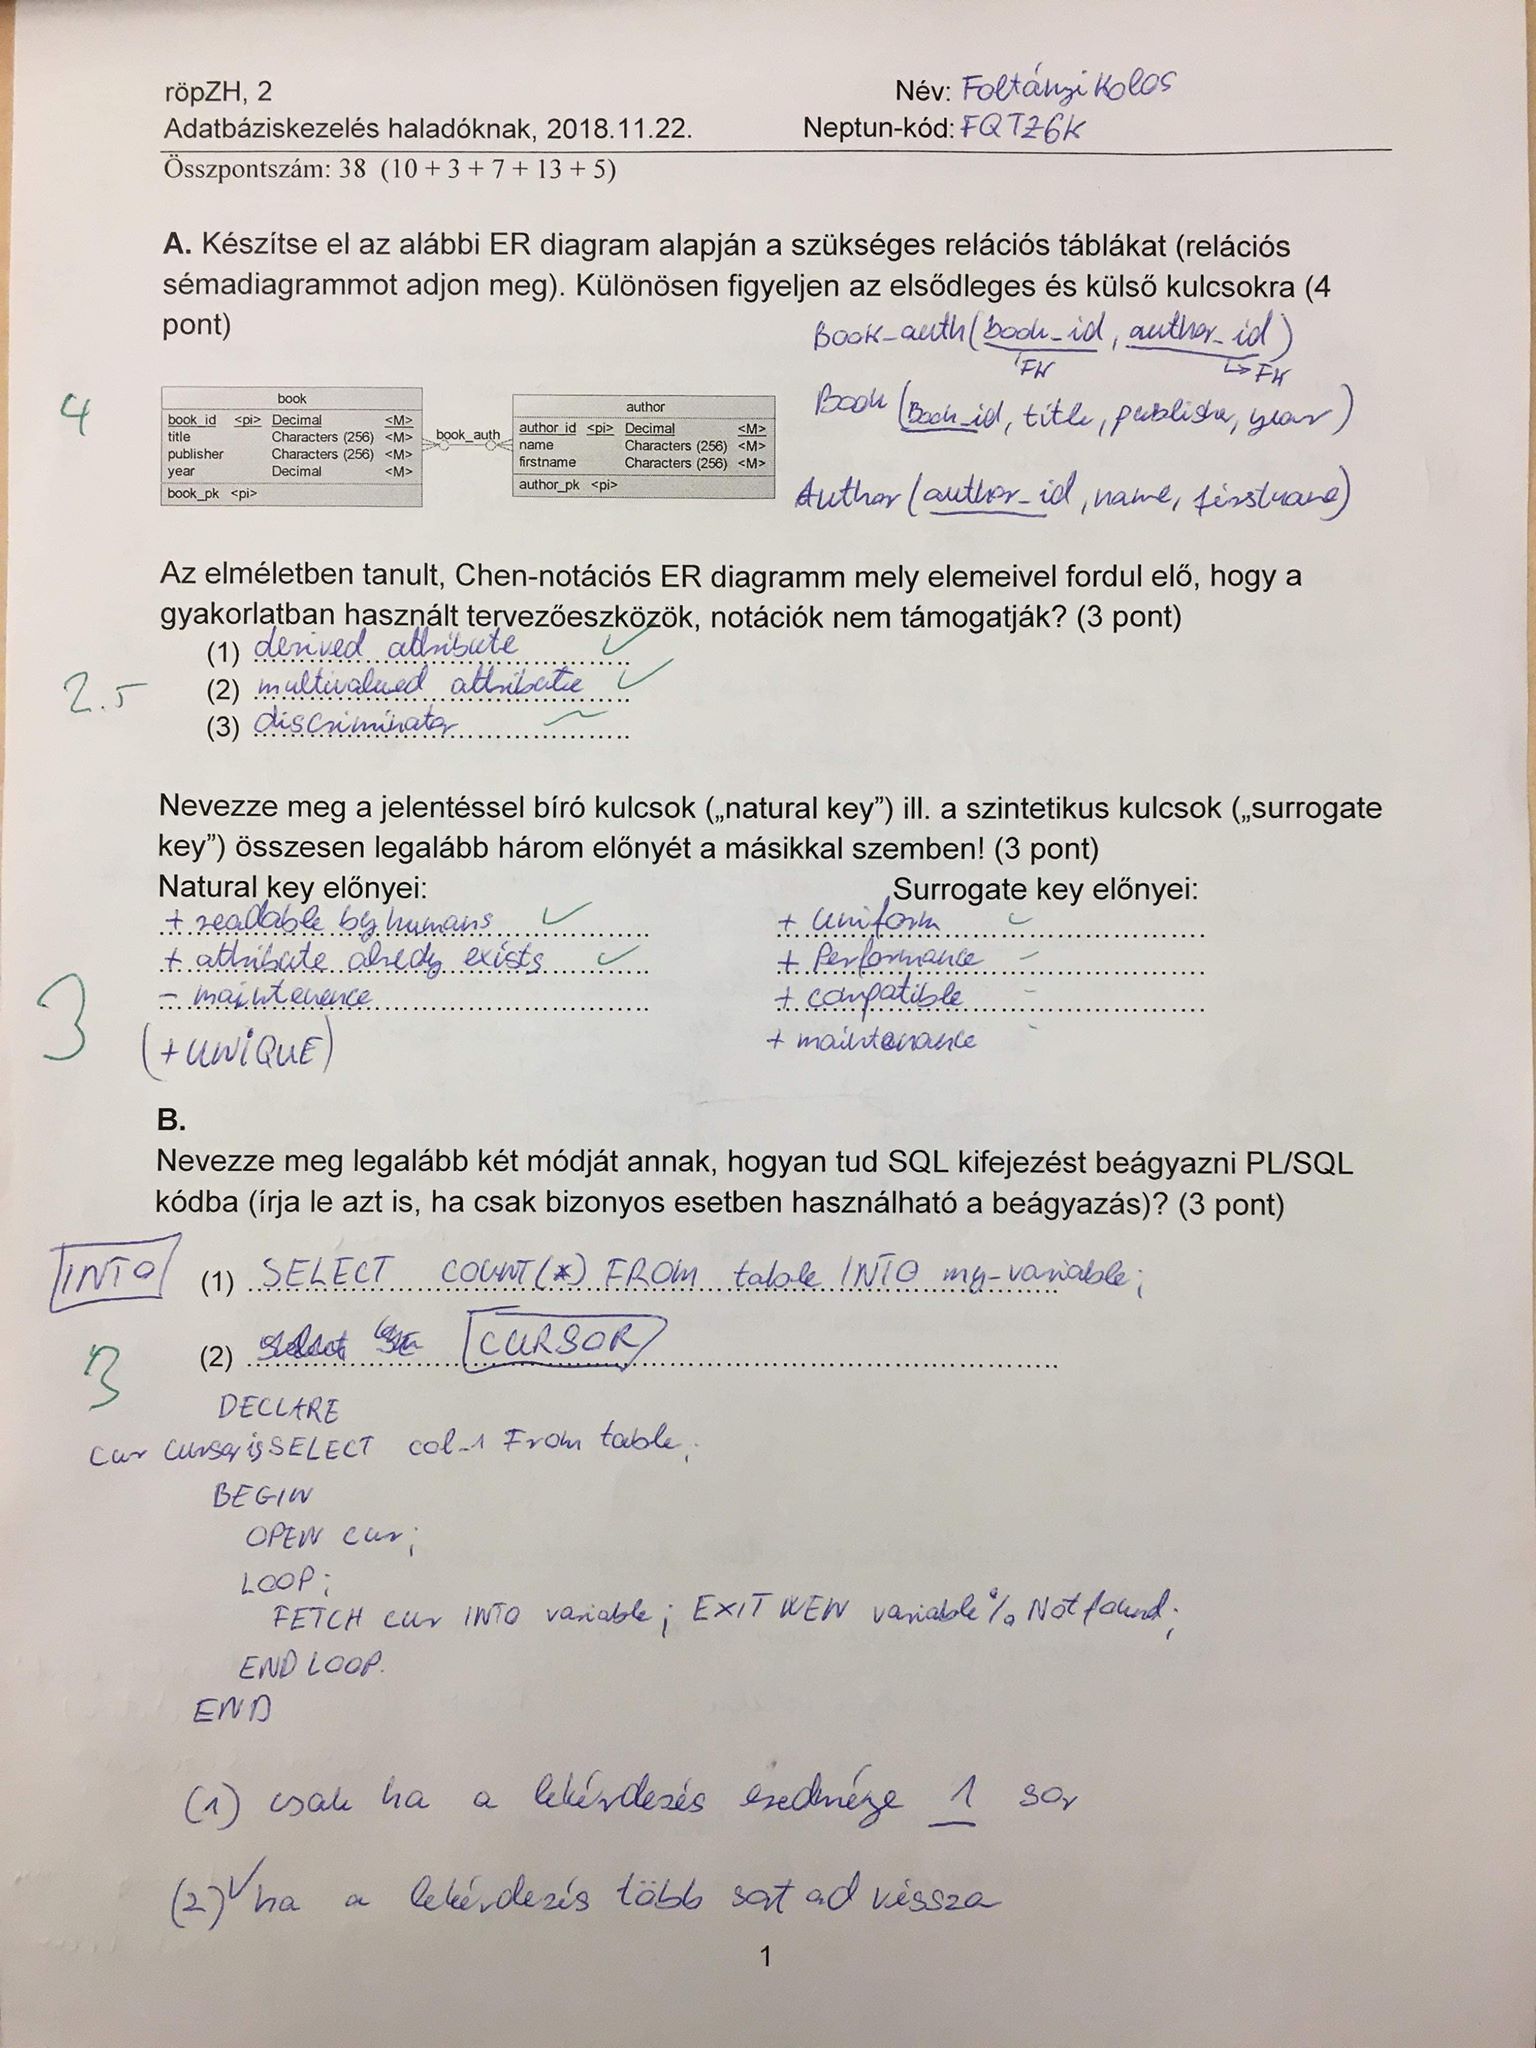 röpZH, 2
Név: Foltányi Kolos
Adatbáziskezelés haladóknak, 2018.11.22.
Neptun-kód: FQTZ6K
Összpontszám: 38 (10 + 3 + 7 + 13 + 5)
A. Készítse el az alábbi ER diagram alapján a szükséges relációs táblákat (relációs
sémadiagrammot adjon meg). Különösen figyeljen az elsődleges és külső kulcsokra (4
pont)
Book_auth (book_id, author_id)
FK FK
Book (Book_id, title, publisher, year)
Author (author_id, name, firstname)
4
book
book_id <pi> Decimal <M>
title Characters (256) <M>
publisher Characters (256) <M>
year Decimal <M>
book_pk <pi>
book_auth
author
author_id <pi> Decimal <M>
name Characters (256) <M>
firstname Characters (256) <M>
author_pk <pi>
Az elméletben tanult, Chen-notációs ER diagramm mely elemeivel fordul elő, hogy a
gyakorlatban használt tervezőeszközök, notációk nem támogatják? (3 pont)
(1) derived attribute
(2) multivalued attribute
(3) discriminator
2.5
Nevezze meg a jelentéssel bíró kulcsok („natural key”) ill. a szintetikus kulcsok („surrogate
key”) összesen legalább három előnyét a másikkal szemben! (3 pont)
Natural key előnyei:
+ readable by humans
+ attribute alredy exists
- maintenence
(+ UNIQUE)
Surrogate key előnyei:
+ Uniform
+ Performance
+ compatible
+ maintenance
3
B.
Nevezze meg legalább két módját annak, hogyan tud SQL kifejezést beágyazni PL/SQL
kódba (írja le azt is, ha csak bizonyos esetben használható a beágyazás)? (3 pont)
INTO (1) SELECT COUNT(*) FROM table INTO my-variable;
(2) CURSOR
3
DECLARE
cur cursor is SELECT col_1 From table;
BEGIN
OPEN cur;
LOOP;
FETCH cur INTO variable; EXIT WEN variable%Notfound;
END LOOP.
END
(1) csak ha a lekérdezés eredménye 1 sor
(2) ha a lekérdezés több sort ad vissza
1